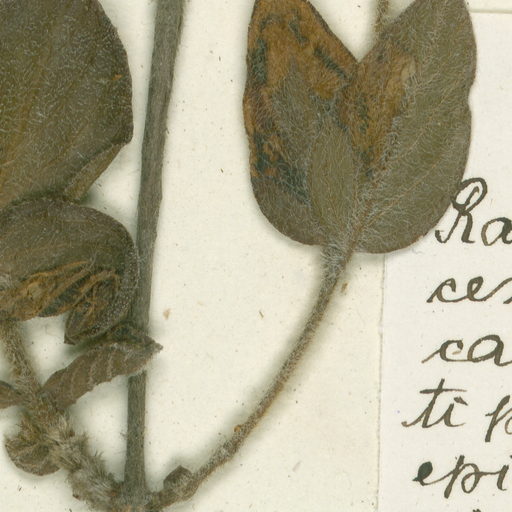 Ra
ces
ca
ti p
epi